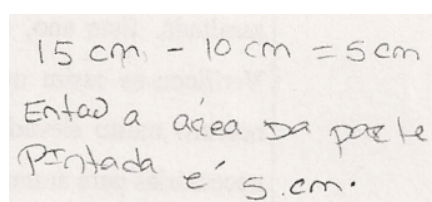 15 cm - 10 cm = 5 cm
Entao a área da parte
Pintada é 5.cm.